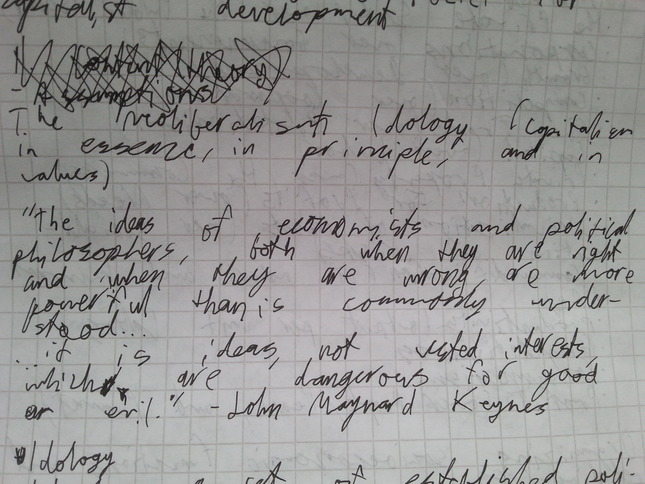 capitalist development
The neoliberalisnt Idology (capitalism
in essence, in principle, and in
values)
"the ideas of economists and political
philosophers, both when they are right
and when they are wrong, are more
powerful than is commonly under-
stood...
...it is ideas, not vested interests,
which are dangerous for good
or evil." - John Maynard Keynes
Idology
set of established poli-